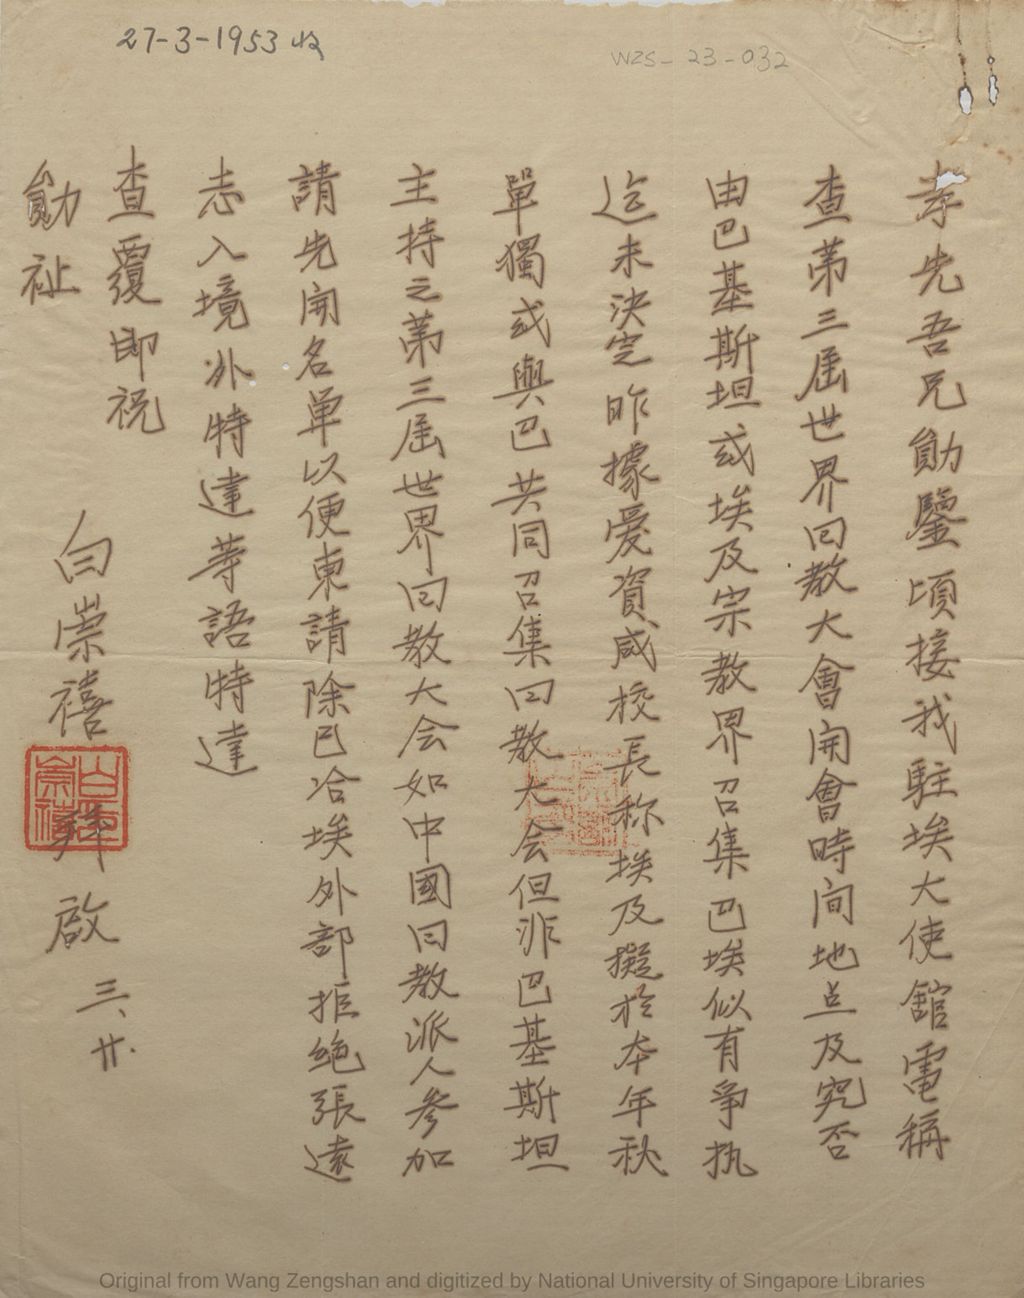 27-3-1953 收
WZS-23-032
孝先吾兄勛鑒頃接我駐埃大使館電稱
查第三屆世界回教大會開會時间地点及究否
由巴基斯坦或埃及宗教界召集巴埃似有爭执
迄未決定昨據爱資咸校長称埃及擬於本年秋
單獨或與巴共同召集回教大会但非巴基斯坦
主持之第三屆世界回教大会如中國回教派人参加
請先開名单以便東請除已洽埃外部拒绝張遠
志入境外特達等語特達
查覆即祝
勛祉
白崇禧拜啟 三、廿.
白崇禧
Original from Wang Zengshan and digitized by National University of Singapore Libraries